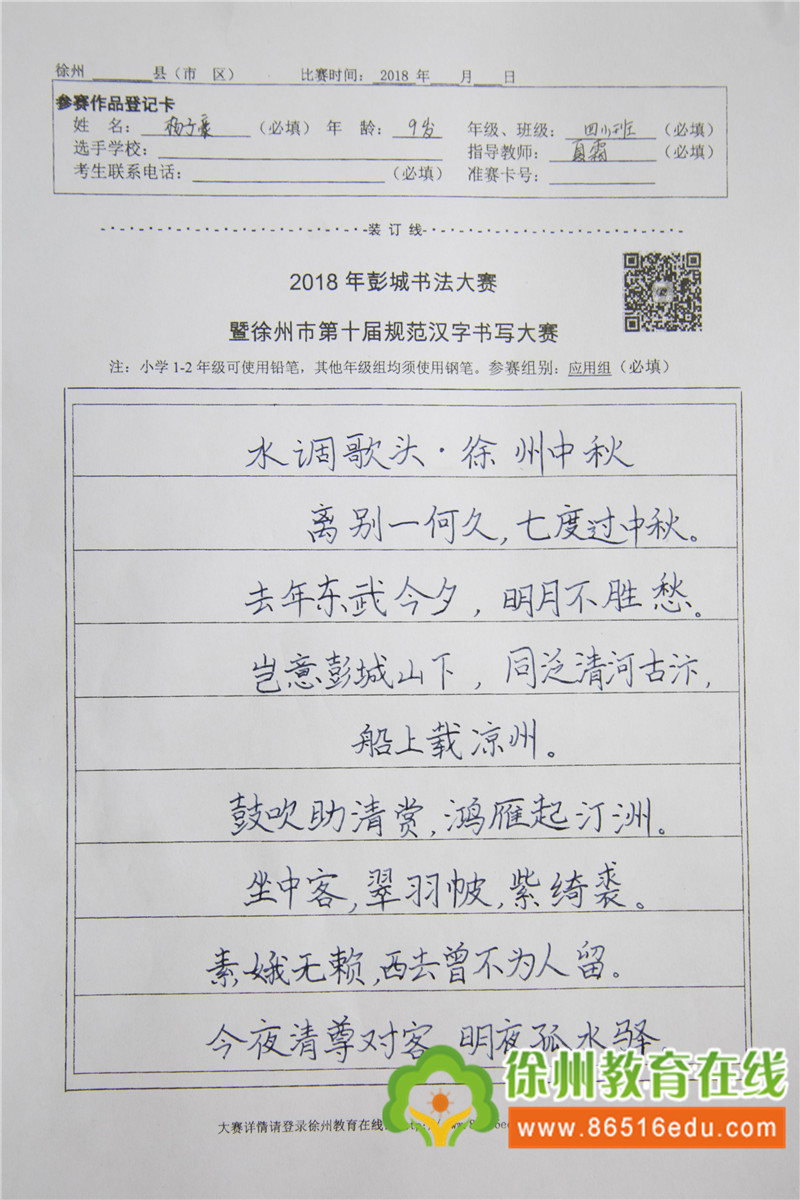 徐州 ______ 县（市 区） 比赛时间：2018 年 ___ 月 ___ 日
参赛作品登记卡
姓 名：杨子豪（必填）年 龄：9岁 年级、班级：四小班（必填）
选手学校： 指导教师：夏霜（必填）
考生联系电话：（必填）准赛卡号：
装 订 线
2018 年彭城书法大赛
暨徐州市第十届规范汉字书写大赛
注：小学 1-2 年级可使用铅笔，其他年级组均须使用钢笔。参赛组别：应用组（必填）
水调歌头·徐州中秋
离别一何久，七度过中秋。
去年东武今夕，明月不胜愁。
岂意彭城山下，同泛清河古汴，
船上载凉州。
鼓吹助清赏，鸿雁起汀洲。
坐中客，翠羽帔，紫绮裘。
素娥无赖，西去曾不为人留。
今夜清尊对客 明夜孤水驿，
大赛详情请登录徐州教育在线
徐州教育在线
www.86516edu.com